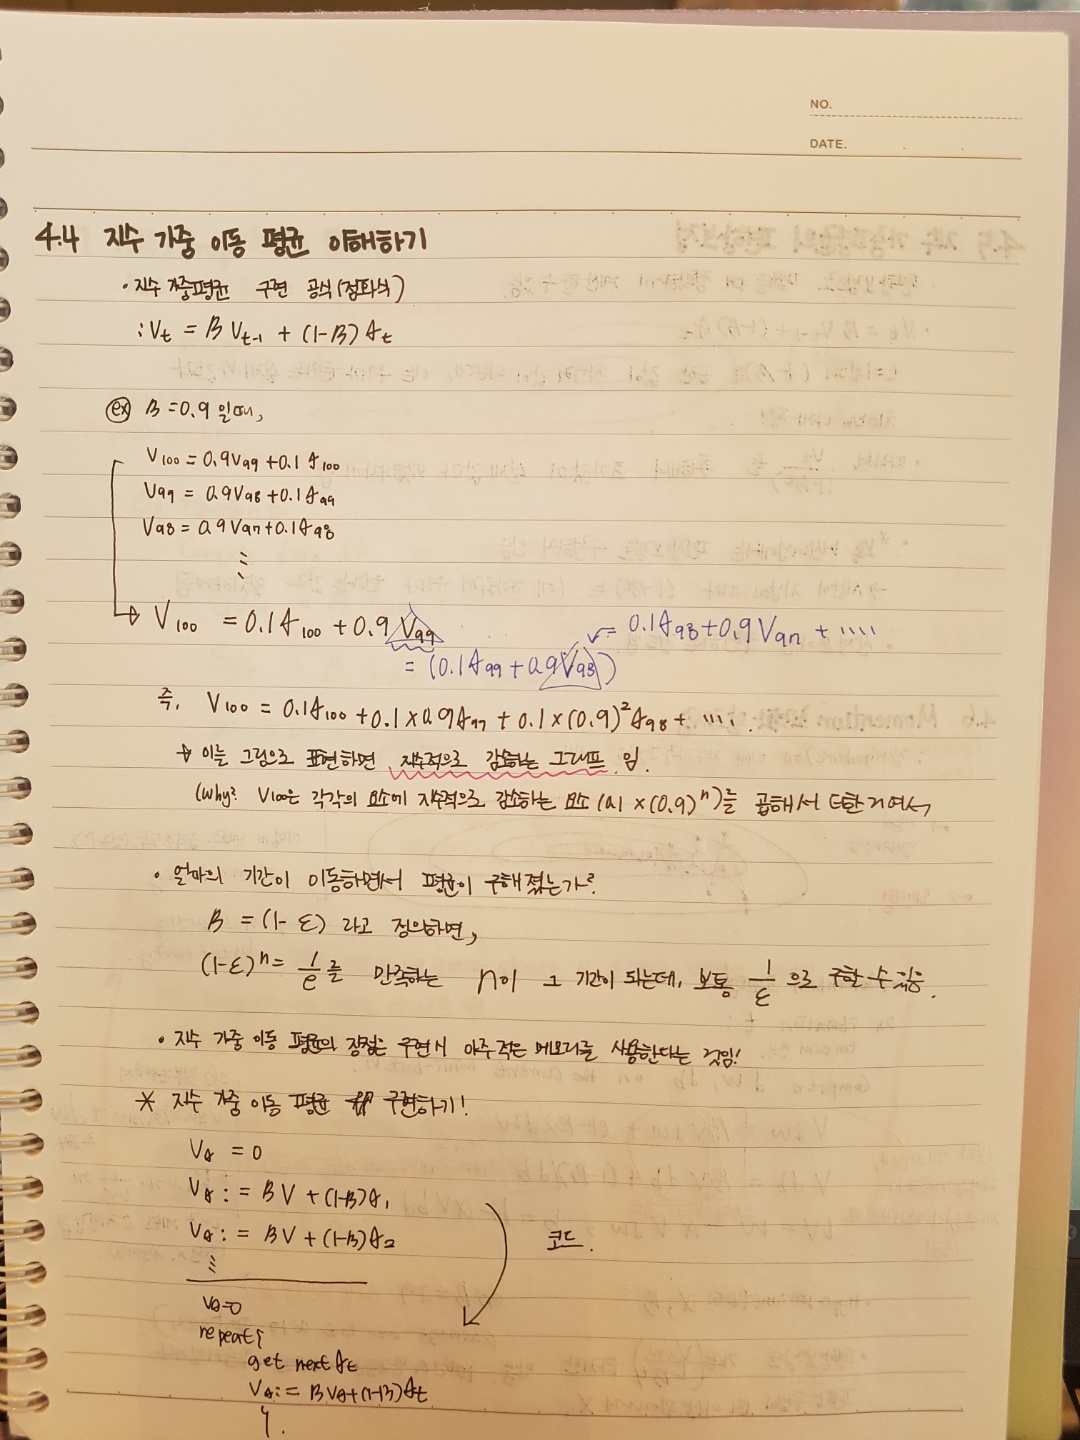 NO.
DATE.
4.4 지수 가중 이동 평균 이해하기
· 지수 가중평균 구현 공식(점화식)
: Vt = β Vt-1 + (1-β) θt
ex β = 0.9 일때,
V100 = 0.9V99 + 0.1θ100
V99 = 0.9V98 + 0.1θ99
V98 = 0.9V97 + 0.1θ98
⋮
→ V100 = 0.1θ100 + 0.9 V99
= 0.1θ98 + 0.9 V97 + ....
= (0.1θ99 + 0.9V98)
즉, V100 = 0.1θ100 + 0.1 × 0.9θ99 + 0.1 × (0.9)²θ98 + ....
→ 이를 그림으로 표현하면 지수적으로 감소하는 그래프 임.
(why? V100은 각각의 요소에 지수적으로 감소하는 요소 (0.1 × (0.9)ⁿ)를 곱해서 더한거여서
· 얼마의 기간이 이동하면서 평균이 구해졌는가?
β = (1- ε) 라고 정의하면,
(1-ε)ⁿ = 1/e 를 만족하는 n이 그 기간이 되는데, 보통 1/ε 으로 구할 수 있음.
· 지수 가중 이동 평균의 장점은 구현시 아주 적은 메모리를 사용한다는 것임!
* 지수 가중 이동 평균 구현하기!
Vθ = 0
Vθ := βV + (1-β)θ1
Vθ := βV + (1-β)θ2
⋮
코드.
Vθ=0
repeat {
get next θt
Vθ := βVθ + (1-β)θt
}.